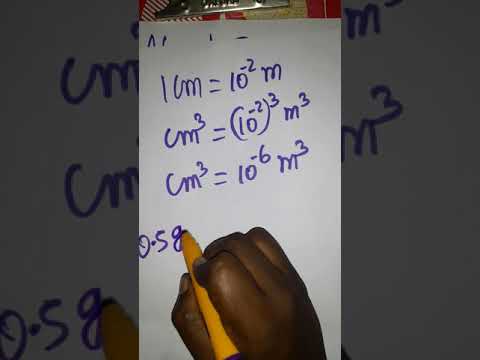 1 cm = 10⁻² m
cm³ = (10⁻²)³ m³
cm³ = 10⁻⁶ m³
0.5 g
0.5 g